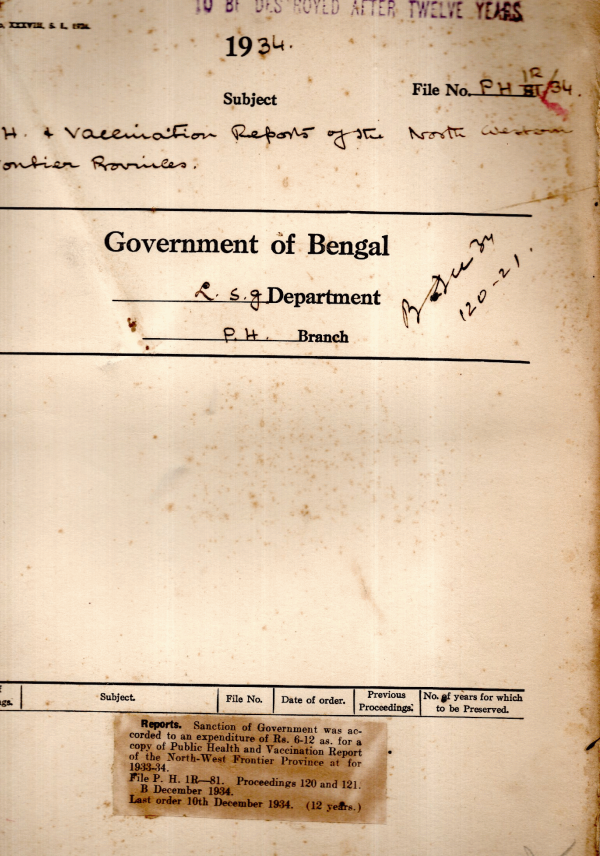 TO BE DESTROYED AFTER TWELVE YEARS
XXXVIII, S. L., 1934.
1934.
File No. P H 1R/34.
Subject
H. & Vaccination Reports of the North Western
ontier Provinces.
Government of Bengal
L. S. G Department
P. H. Branch
B Dec 34
120-21.
gs.
Subject.
File No.
Date of order.
Previous Proceedings.
No. of years for which to be Preserved.
Reports. Sanction of Government was ac-
corded to an expenditure of Rs. 6-12 as. for a
copy of Public Health and Vaccination Report
of the North-West Frontier Province at for
1933-34.
File P. H. 1R—81. Proceedings 120 and 121.
B December 1934.
Last order 10th December 1934. (12 years.)